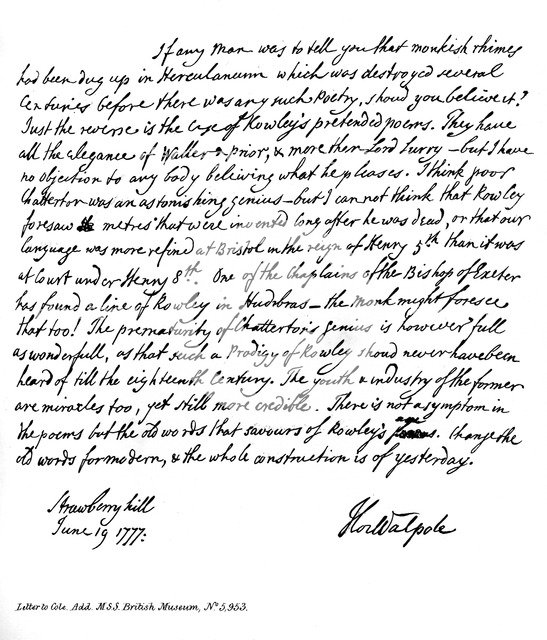 If any man was to tell you that monkish rhimes
had been dug up in Herculanum which was destroyed several
Centuries before there was any such Poetry, shoud you believe it?
Just the reverse is the Case of Rowley's pretended poems. They have
all the elegance of Waller & Prior, & more than Lord Surry – but I have
no objection to any body believing what he pleases. I think poor
Chatterton was an astonishing genius – but I can not think that Rowley
foresaw metres that were invented long after he was dead, or that our
language was more refined at Bristol in the reign of Henry 5th than it was
at Court under Henry 8th. One of the Chaplains of the Bishop of Exeter
has found a line of Rowley in Hudibras – the Monk might foresee
that too! The prematurity of Chatterton's genius is however full
as wonderfull, as that such a Prodigy of Rowley shoud never have been
heard of till the eighteenth Century. The youth & industry of the former
are miracles too, yet still more credible. There is not a symptom in
the poems but the old words that savours of Rowley's age. Change the
old words for modern, & the whole construction is of yesterday.
Strawberry hill
June 19 1777.
Hor Walpole
Letter to Cole. Add. M.S.S. British Museum, No. 5,953.